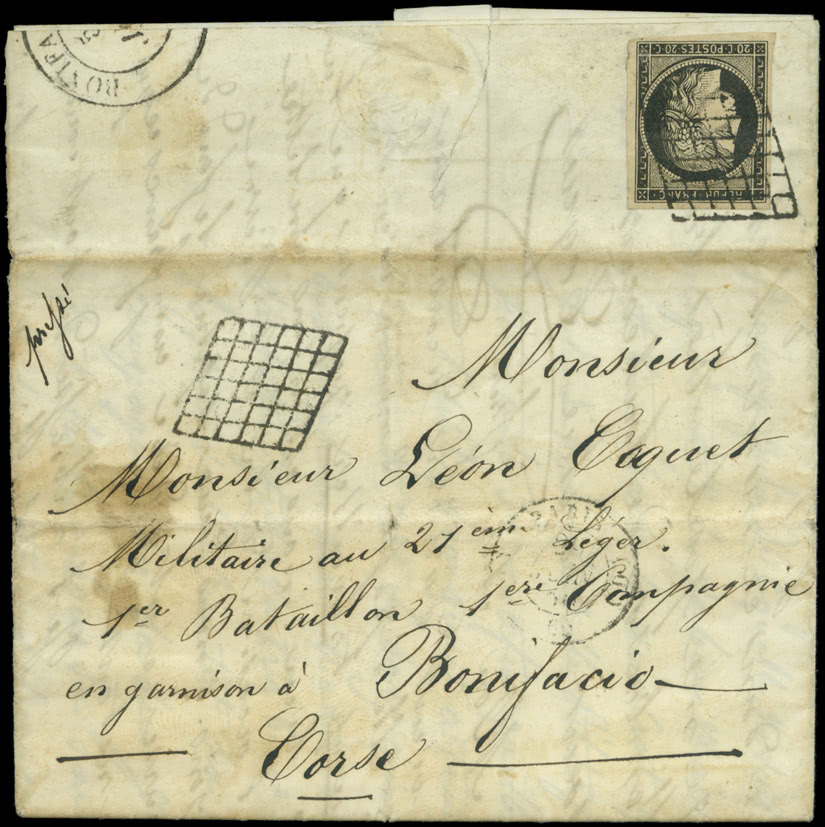 BONIFA
20 C. POSTES 20 C.
REPUB. FRANC.
pressé
Monsieur
Monsieur Léon Coquet
Militaire au 21ème Léger.
1er Bataillon 1ere Compagnie
en garnison à Bonifacio
Corse
PARIS